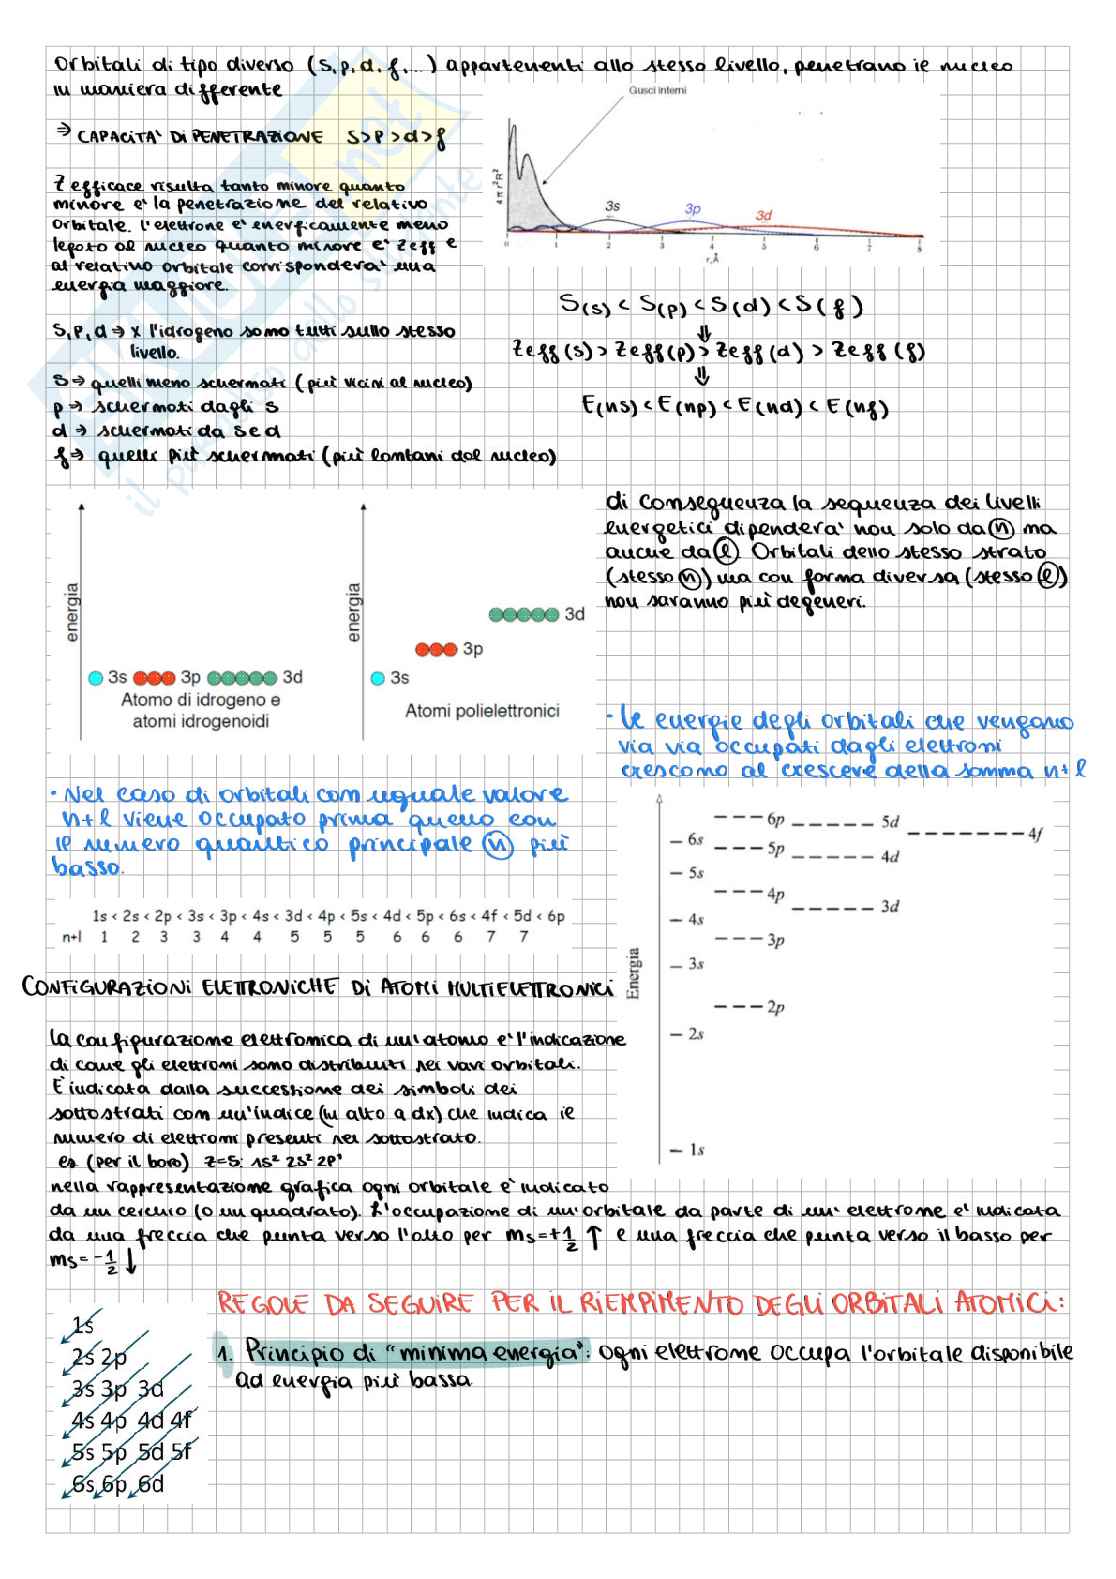 Orbitali di tipo diverso (s, p, d, f, ...) appartenenti allo stesso livello, penetrano il nucleo
in maniera differente
⇒ CAPACITA' DI PENETRAZIONE S>P>d>f
Z efficace risulta tanto minore quanto
minore e' la penetrazione del relativo
orbitale. L'elettrone e' energicamente meno
legato al nucleo quanto minore e' Zeff e
al relativo orbitale corrispondera' una
energia maggiore.
Gusci interni
4 π r² R²
3s
3p
3d
0 1 2 3 4 5 6 7 8
r, Å
S, P, d ⇒ x l'idrogeno sono tutti sullo stesso
livello.
s ⇒ quelli meno schermati (più vicini al nucleo)
p ⇒ schermati dagli s
d ⇒ schermati da s e d
f ⇒ quelli più schermati (più lontani dal nucleo)
S(s) < S(p) < S(d) < S(f)
⇓
Zeff(s) > Zeff(p) > Zeff(d) > Zeff(f)
⇓
E(ns) < E(np) < E(nd) < E(nf)
energia
3s 3p 3d
Atomo di idrogeno e
atomi idrogenoidi
energia
3d
3p
3s
Atomi polielettronici
di conseguenza la sequenza dei livelli
energetici dipendera' non solo da n ma
anche da l. Orbitali dello stesso strato
(stesso n) ma con forma diversa (stesso l)
non saranno più degeneri.
- Le energie degli orbitali che vengono
via via occupati dagli elettroni
crescono al crescere della somma n+l
· Nel caso di orbitali con uguale valore
n+l viene occupato prima quello con
il numero quantico principale n più
basso.
1s < 2s < 2p < 3s < 3p < 4s < 3d < 4p < 5s < 4d < 5p < 6s < 4f < 5d < 6p
n+l 1 2 3 3 4 4 5 5 5 6 6 6 7 7
Energia
6s 6p 5d 4f
5s 5p 4d
4s 4p 3d
3s 3p
2s 2p
1s
CONFIGURAZIONI ELETTRONICHE DI ATOMI MULTIELETTRONICI
La configurazione elettronica di un'atomo e' l'indicazione
di come gli elettroni sono distribuiti nei vari orbitali.
E' indicata dalla successione dei simboli dei
sottostrati con un'indice (in alto a dx) che indica il
numero di elettroni presenti nel sottostrato.
es (per il boro) Z=5: 1s² 2s² 2p¹
nella rappresentazione grafica ogni orbitale e' indicato
da un cerchio (o un quadrato). L'occupazione di un'orbitale da parte di un' elettrone e' indicata
da una freccia che punta verso l'alto per ms=+1/2 ↑ e una freccia che punta verso il basso per
ms=-1/2 ↓
REGOLE DA SEGUIRE PER IL RIEMPIMENTO DEGLI ORBITALI ATOMICI:
1. Principio di "minima energia": ogni elettrone occupa l'orbitale disponibile
ad energia più bassa
1s
2s 2p
3s 3p 3d
4s 4p 4d 4f
5s 5p 5d 5f
6s 6p 6d